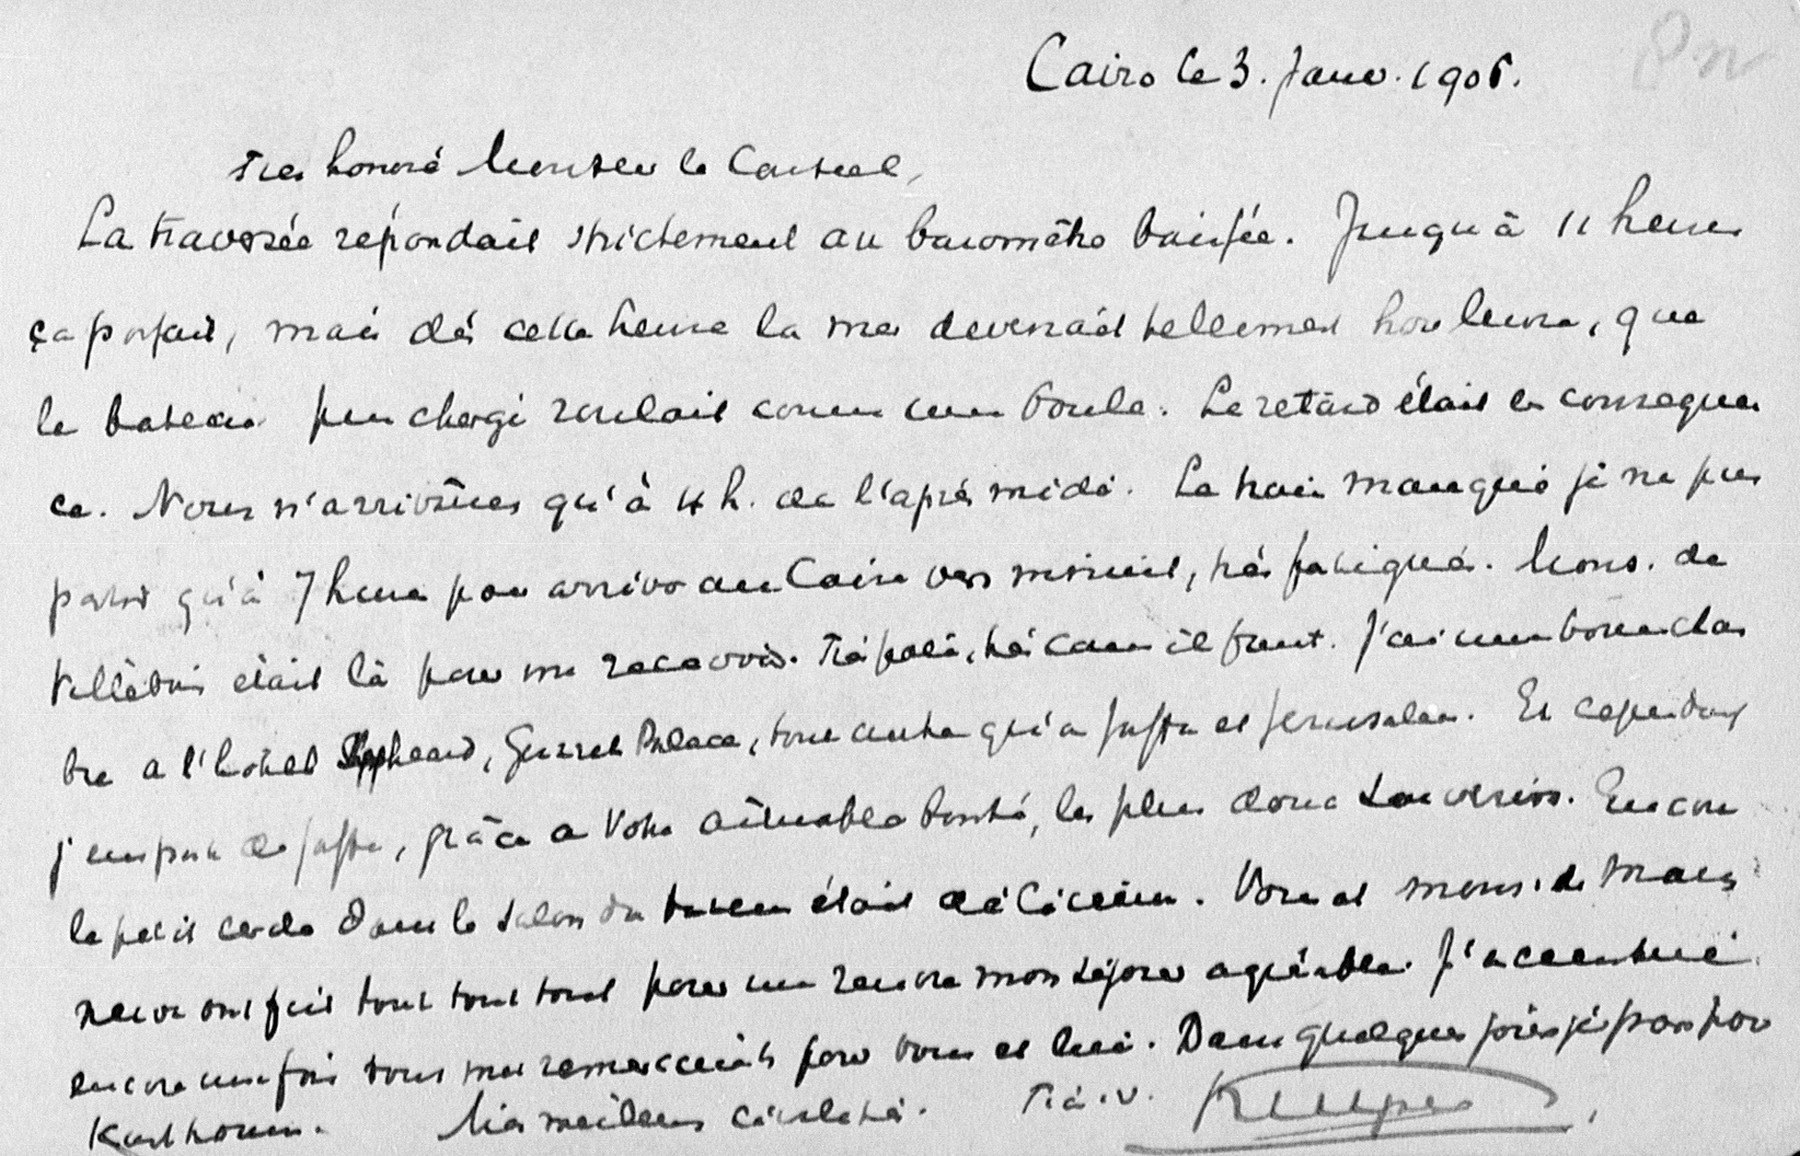 Cairo le 3. Janv. 1906.
Très honoré Monsieur le Consul,
La traversée répondait strictement au baromètre baissée. Jusqu'à 11 heures
ça parfait, mais dès cette heure la mer devenait tellement houleuse, que
le bateau peu chargé roulait comme une boule. Le retard était la conséquen
ce. Nous n'arrivâmes qu'à 4 h. de l'après midi. Le train manqué je ne pus
partir qu'à 7 heures pour arriver au Caire vers minuit, très fatigué. Mons. de
était là pour me recevoir. Très poli, très comme il faut. J'ai une bonne cham
bre a l'hotel Shepheard, Palace, tout autre qu'a Jaffa et Jerusalem. Et cependant
j'emporte de Jaffa, grâce a Votre aimable bonté, les plus doux souvenirs. Encore
le petit cercle dans le salon du bateau était délicieux. Vous et mons. de
ont fait tout tout tout pour me rendre mon séjour agréable. J'accentue
encore une fois tous mes remerciments pour vous et lui. Dans quelques jours je pars pour
Karthoum. Mes meilleurs Tr. à. v. Kuyper